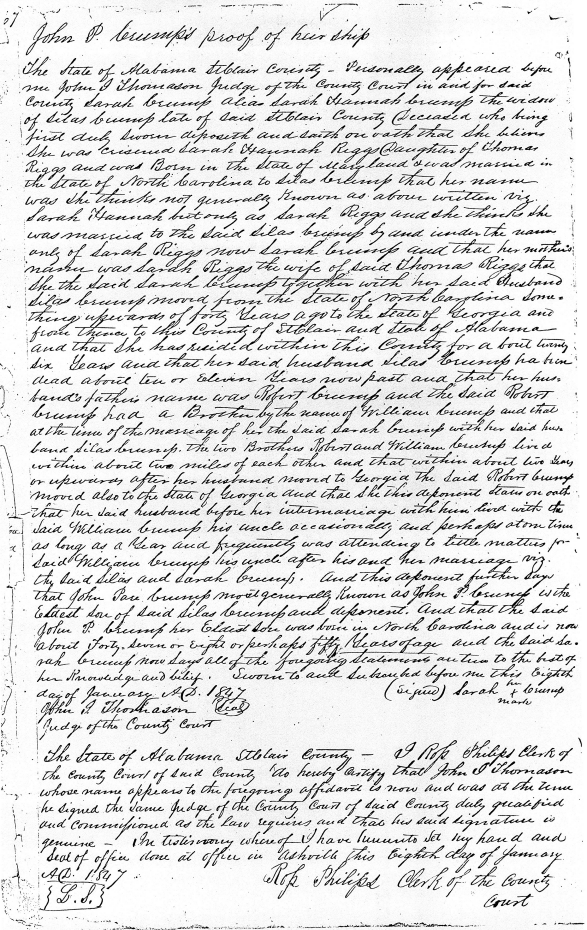 57
John P. Crump's proof of heir ship
The State of Alabama St Clair County - Personally appeared before
me John I Thomason Judge of the County Court in and for said
County Sarah Crump alias Sarah Hannah Crump the widow
of Silas Crump late of said St Clair County Deceased who being
first duly sworn deposeth and saith on oath that She believes
She was Crisened Sarah Hannah Riggs Daughter of Thomas
Riggs and was Born in the State of Maryland & was married in
the State of North Carolina to Silas Crump that her name
was She thinks not generally known as above written viz
Sarah Hannah but only as Sarah Riggs and she thinks she
was married to the said Silas Crump by and under the name
only of Sarah Riggs now Sarah Crump and that her mother's
name was Sarah Riggs the wife of said Thomas Riggs that
She the said Sarah Crump together with her said Husband
Silas Crump moved from the State of North Carolina some-
thing upwards of forty Years ago to the State of Georgia and
from thence to this County of St Clair and State of Alabama
and that She has resided within this County for a bout twenty
six Years and that her said husband Silas Crump has been
dead about ten or Eleven Years now past and that her hus-
band's father's name was Robert Crump and the said Robert
Crump had a Brother by the name of William Crump and that
at the time of the marriage of her the said Sarah Crump with her said hus-
band Silas Crump. the two Brothers Robert and William Crump lived
within about two miles of each other and that within about two Years
or upwards after her husband moved to Georgia the said Robert Crump
moved also to the State of Georgia and that She this deponent States on oath
that her said husband before her intermarriage with him lived with the
said William Crump his uncle occasionally and perhaps at one time
as long as a Year and frequently was attending to little matters for
said William Crump his uncle after his and her marriage viz.
the said Silas and Sarah Crump. And this deponent further says
that John Pare Crump most generally known as John P. Crump is the
Eldest son of said Silas Crump and deponent. And that the said
John P. Crump her Eldest Son was born in North Carolina and is now
about Forty seven or Eight or perhaps fifty Years of age and the said Sa-
rah Crump now says all of the foregoing Statements are true to the best of
her Knowledge and belief. Sworn to and subscribed before me this Eighth
day of January A.D. 1847 (Signed) Sarah her x mark Crump
John I Thomason Seal
Judge of the County Court
The State of Alabama St Clair County - I Ross Philips Clerk of
the County Court of said County do hereby certify that John I Thomason
whose name appears to the foregoing affidavit is now and was at the time
he signed the same Judge of the County Court of said County duly qualified
and commissioned as the law requires and that his said signature is
genuine - In testimony whereof I have hereunto set my hand and
Seal of office done at office in Ashville this Eighth day of January
A.D. 1847
Ross Philips Clerk of the County
Court
{L.S.}